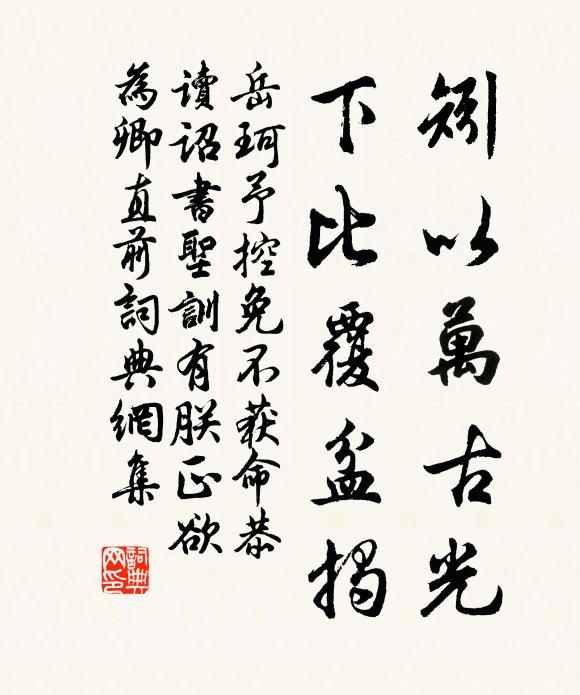 矧以萬古光
下比覆盆揭
岳珂予控免不获命恭
讀詔書聖訓有朕正欲
為卿直前詞典網集
詞典网印